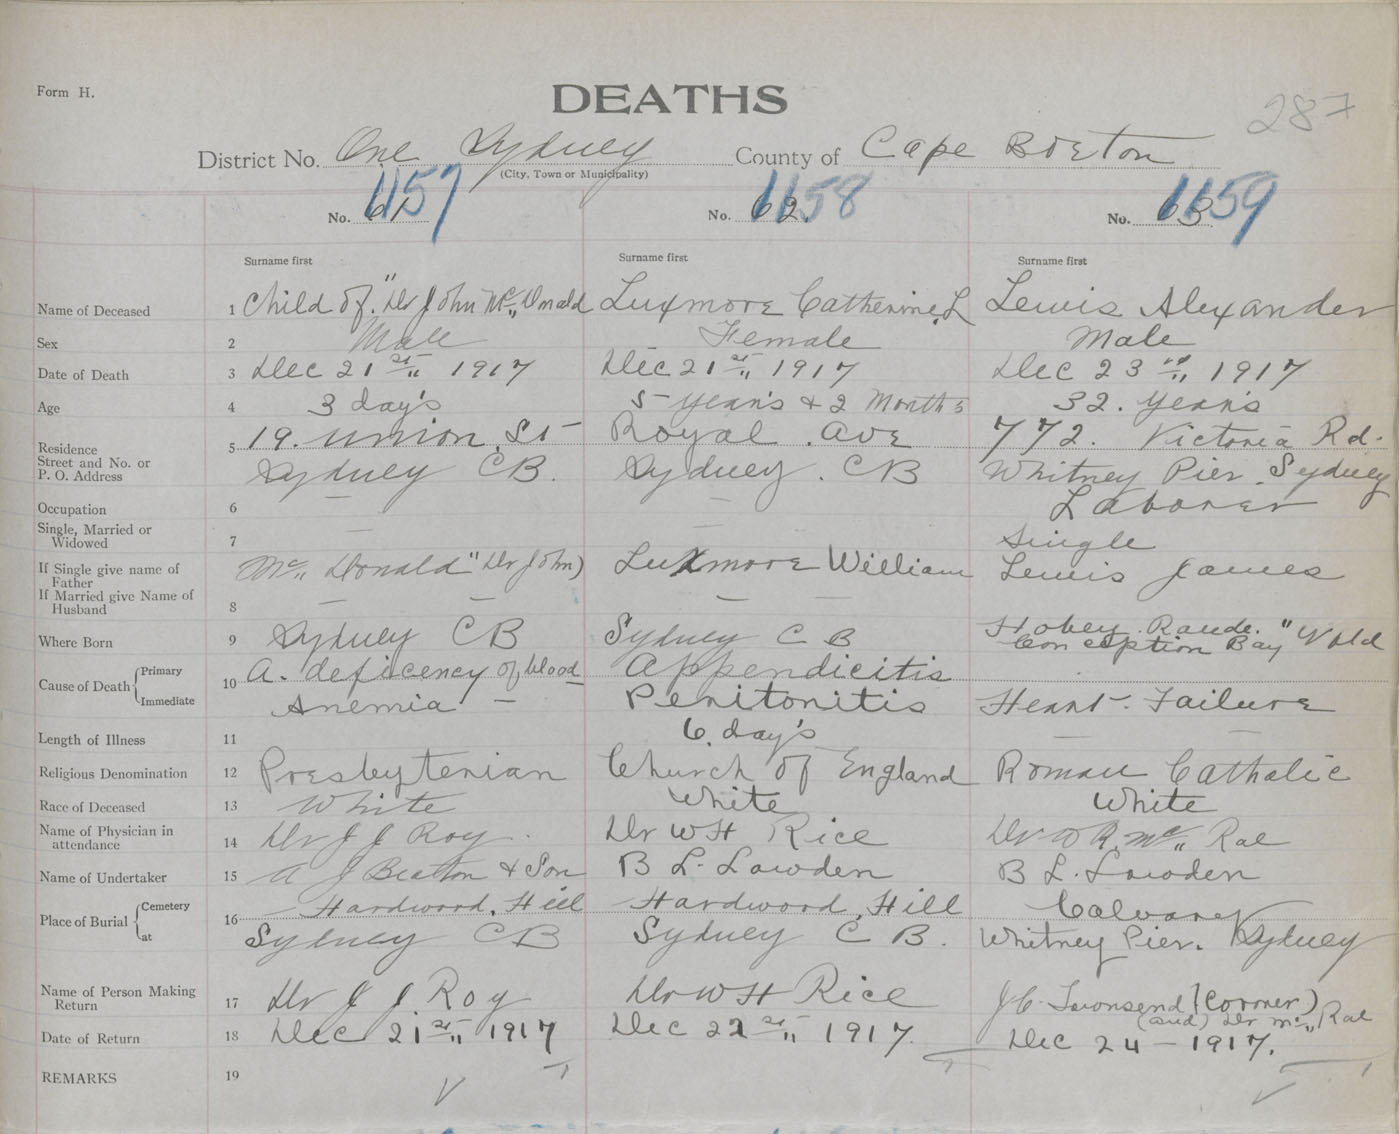 Form H.
DEATHS
287
District No. One Sydney County of Cape Breton
(City, Town or Municipality)
1157 1158 1159
No. 61 No. 62. No. 63.
Surname first Surname first Surname first
Name of Deceased 1 Child of "Dr John Mc„ Donald Luxmore Catherine, L Lewis Alexander
Sex 2 Male Female Male
Date of Death 3 Dec 21st„ 1917 Dec 21st„ 1917 Dec 23rd„ 1917
Age 4 3 day's 5 year's & 2 Months 32. year's
Residence 5 19. Union. St Royal . Ave 772. Victoria Rd.
Street and No. or
P. O. Address Sydney CB. Sydney . CB Whitney Pier. Sydney
Occupation 6 — — Laborer
Single, Married or
Widowed 7 — — Single
If Single give name of
Father Mc„ Donald "Dr John) Luxmore William Lewis James
If Married give Name of
Husband 8 — — — —
Where Born 9 Sydney CB Sydney C B "Nfld
Conception Bay"
Cause of Death Primary 10 A. deficency of blood Appendicitis
Immediate Anemia — Peritonitis Heart. Failure
Length of Illness 11 6. day's — —
Religious Denomination 12 Presbyterian Church of England Roman Catholic
Race of Deceased 13 White White White
Name of Physician in
attendance 14 Dr J J Roy. Dr W H Rice Dr D R. Mc„ Rae
Name of Undertaker 15 A J Beaton & Son B L. Lowden B L. Lowden
Place of Burial Cemetery 16 Hardwood. Hill Hardwood. Hill Calvary
at Sydney CB Sydney C B. Whitney Pier. Sydney
Name of Person Making
Return 17 Dr J J. Roy Dr W H Rice J C. Townsend (Coroner)
(and) Dr Mc„ Rae
Date of Return 18 Dec 21st„ 1917 Dec 22 „ 1917. Dec 24 — 1917.
REMARKS 19